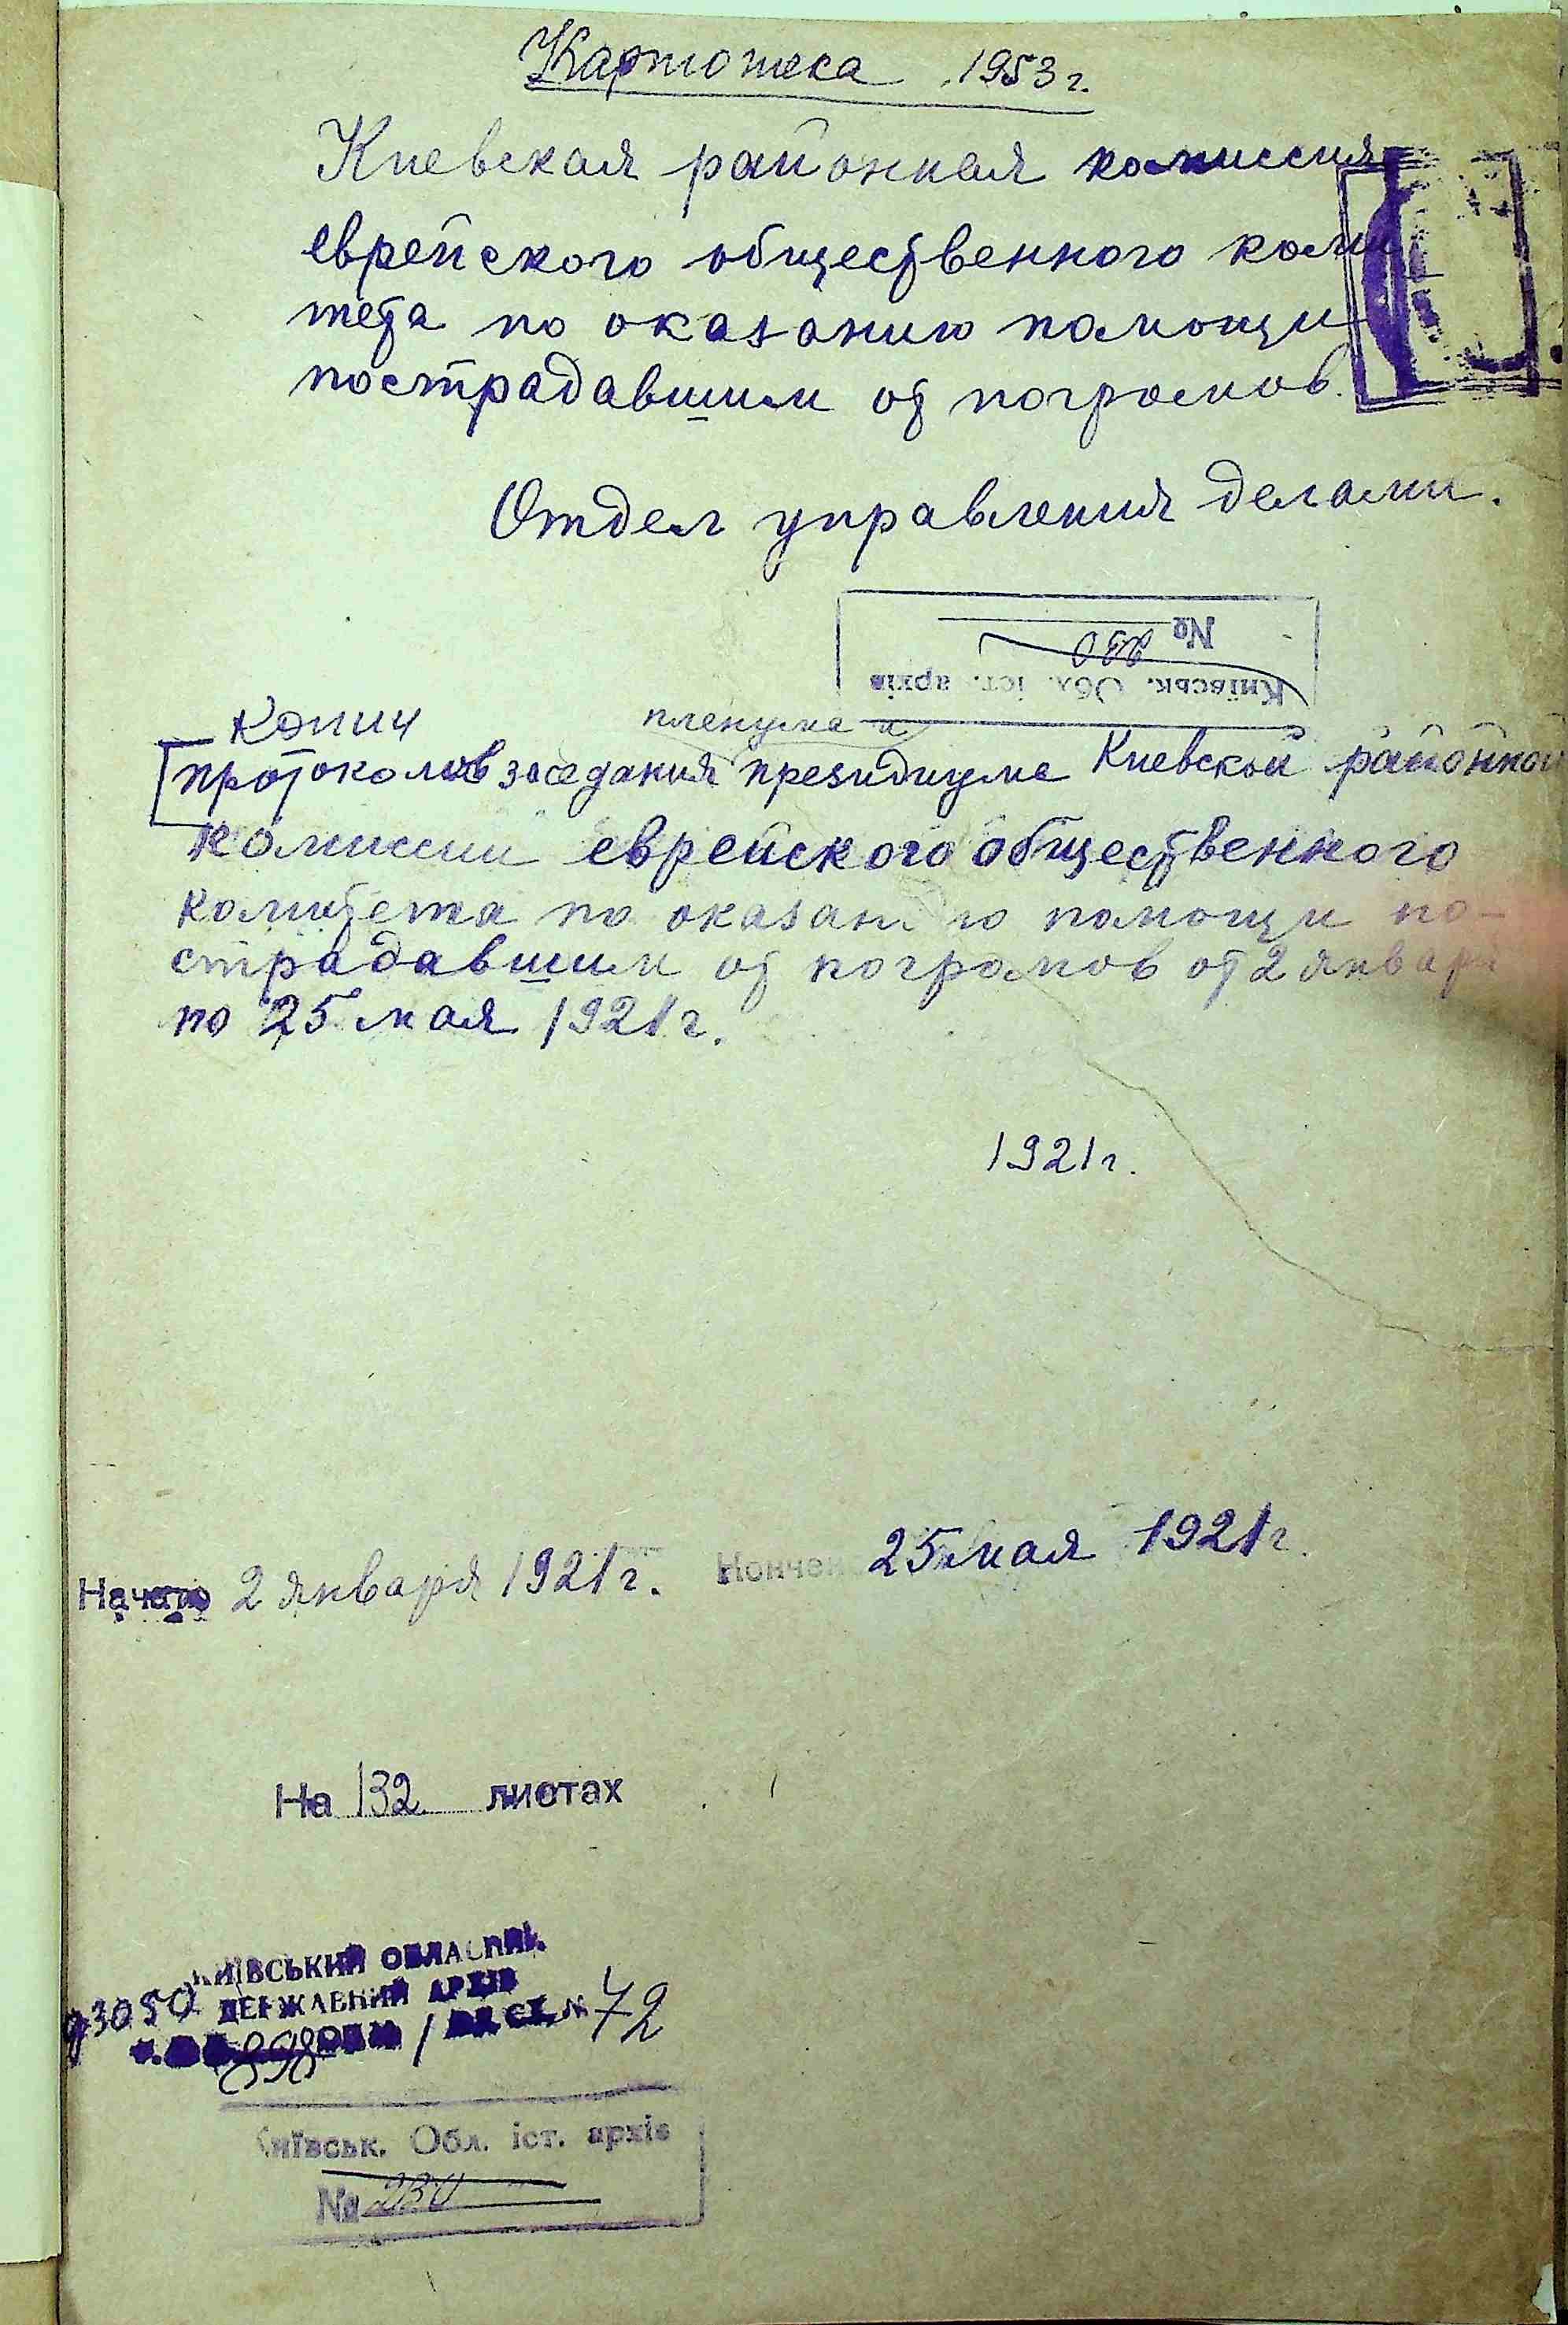 Картотека 1953 г.
Киевская районная комиссия
еврейского общественного коми
тета по оказанию помощи
пострадавшим от погромов.
Отдел управления делами.
№ 230
Київськ. Обл. іст. архів
Копии
пленума и
протоколов заседания президиума Киевской районной
комиссии еврейского общественного
комитета по оказанию помощи по-
страдавшим от погромов от 2 января
по 25 мая 1921 г.
1921 г.
Начато 2 января 1921 г. Кончен 25 мая 1921 г.
На 132 листах
КИЇВСЬКИЙ ОБЛАСНИЙ
ДЕРЖАВНИЙ АРХІВ
3050 / 72
Київськ. Обл. іст. архів
№ 230